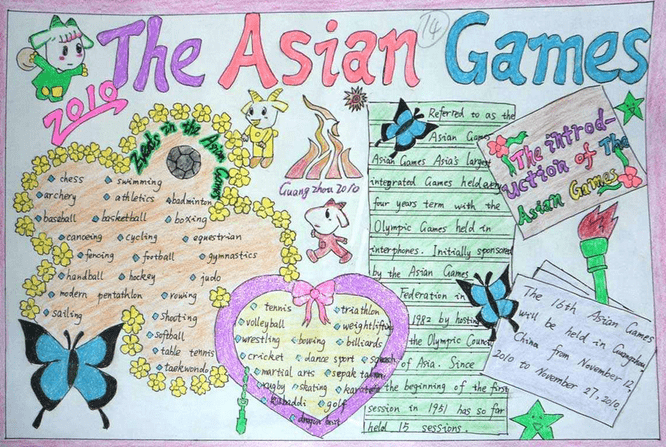 The Asian Games
14
2010
Guang zhou 2010
in the Asian Games
chess swimming
archery athletics badminton
baseball basketball boxing
canoeing cycling equestrian
fencing football gymnastics
handball hockey judo
modern pentathlon rowing
sailing shooting
softball
table tennis
taekwondo
tennis triathlon
volleyball weightlifting
wrestling bowing billiards
cricket dance sport squash
martial arts sepak takraw
rugby skating karate
kabaddi golf
dragon boat
Referred to as the
Asian Games,
Asian Games Asia's largest
integrated Games held every
four years term with the
Olympic Games held in
interphones. Initially sponsored
by the Asian Games
Federation in
1982 by hosting
the Olympic Council
of Asia. Since
the beginning of the first
session in 1951 has so far
held 15 sessions.
The introd-
uction of The
Asian Games
The 16th Asian Games
will be held in Guangzhou
China from November 12,
2010 to November 27, 2010